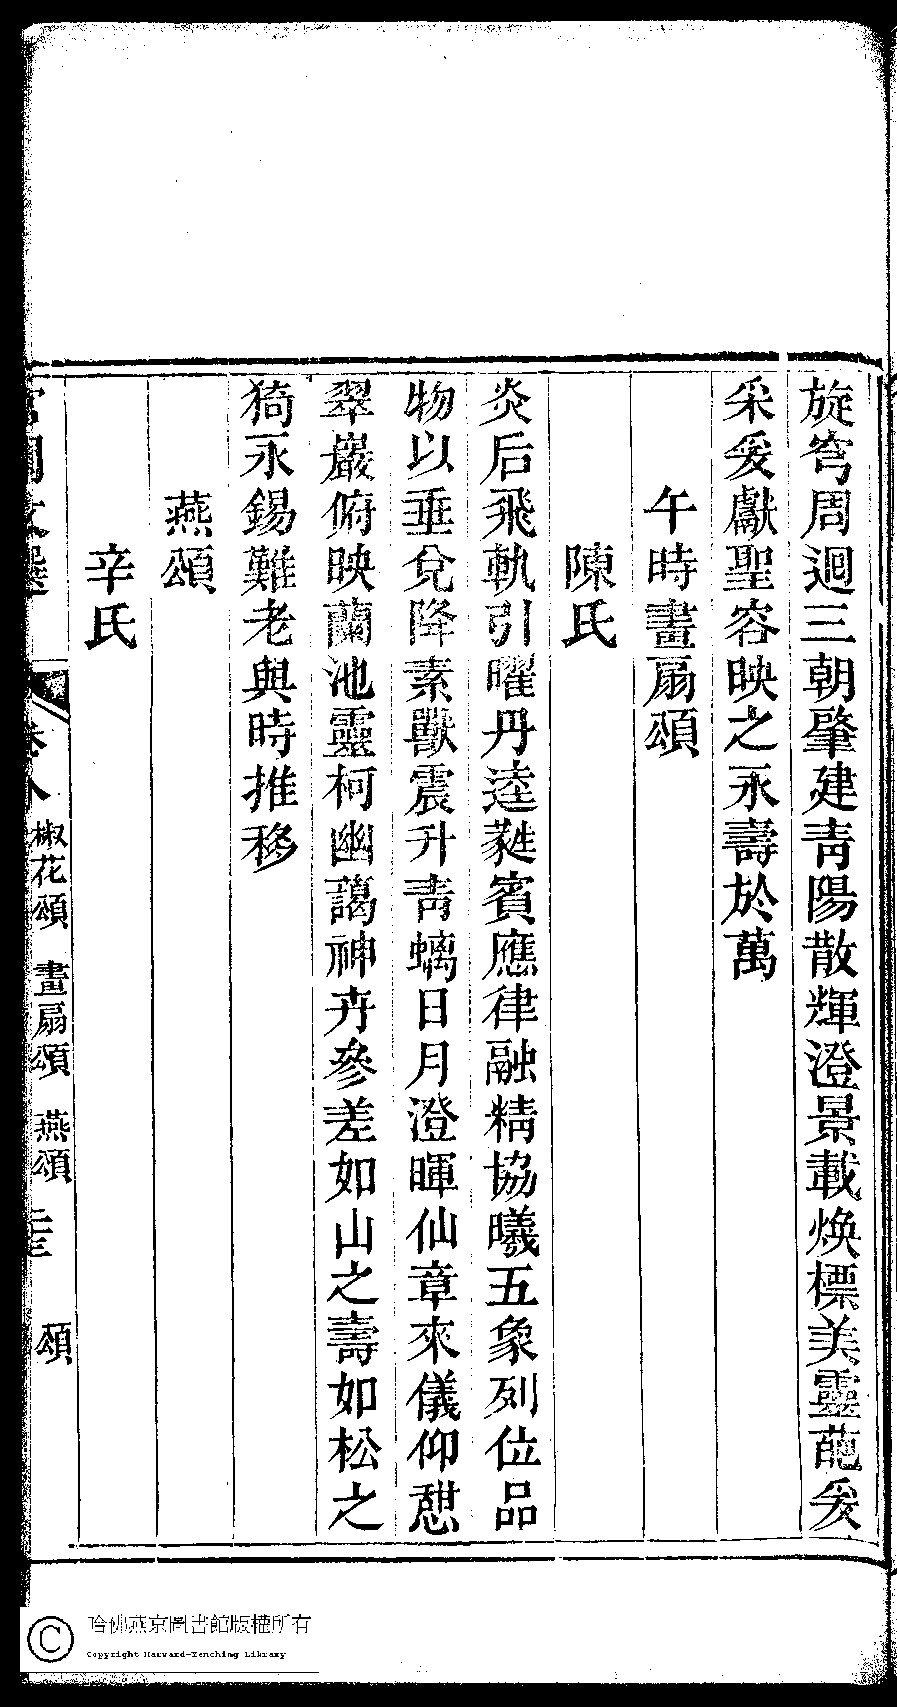 旋穹周迴三朝肇建靑陽散輝澄景載煥標美靈葩爰
采爰獻聖容映之永壽於萬
午時畫扇頌
陳氏
炎后飛軌引曜丹逵蕤賓應律融精協曦五象列位品
物以垂兌降素獸震升靑螭日月澄暉仙章來儀仰憇
翠巖俯映蘭池靈柯幽藹神卉參差如山之壽如松之
猗永錫難老與時推移
燕頌
辛氏
宮閨文選 卷八 椒花頌 畫扇頌 燕頌 頌
哈佛燕京圖書館版權所有
Copyright Harvard-Yenching Library